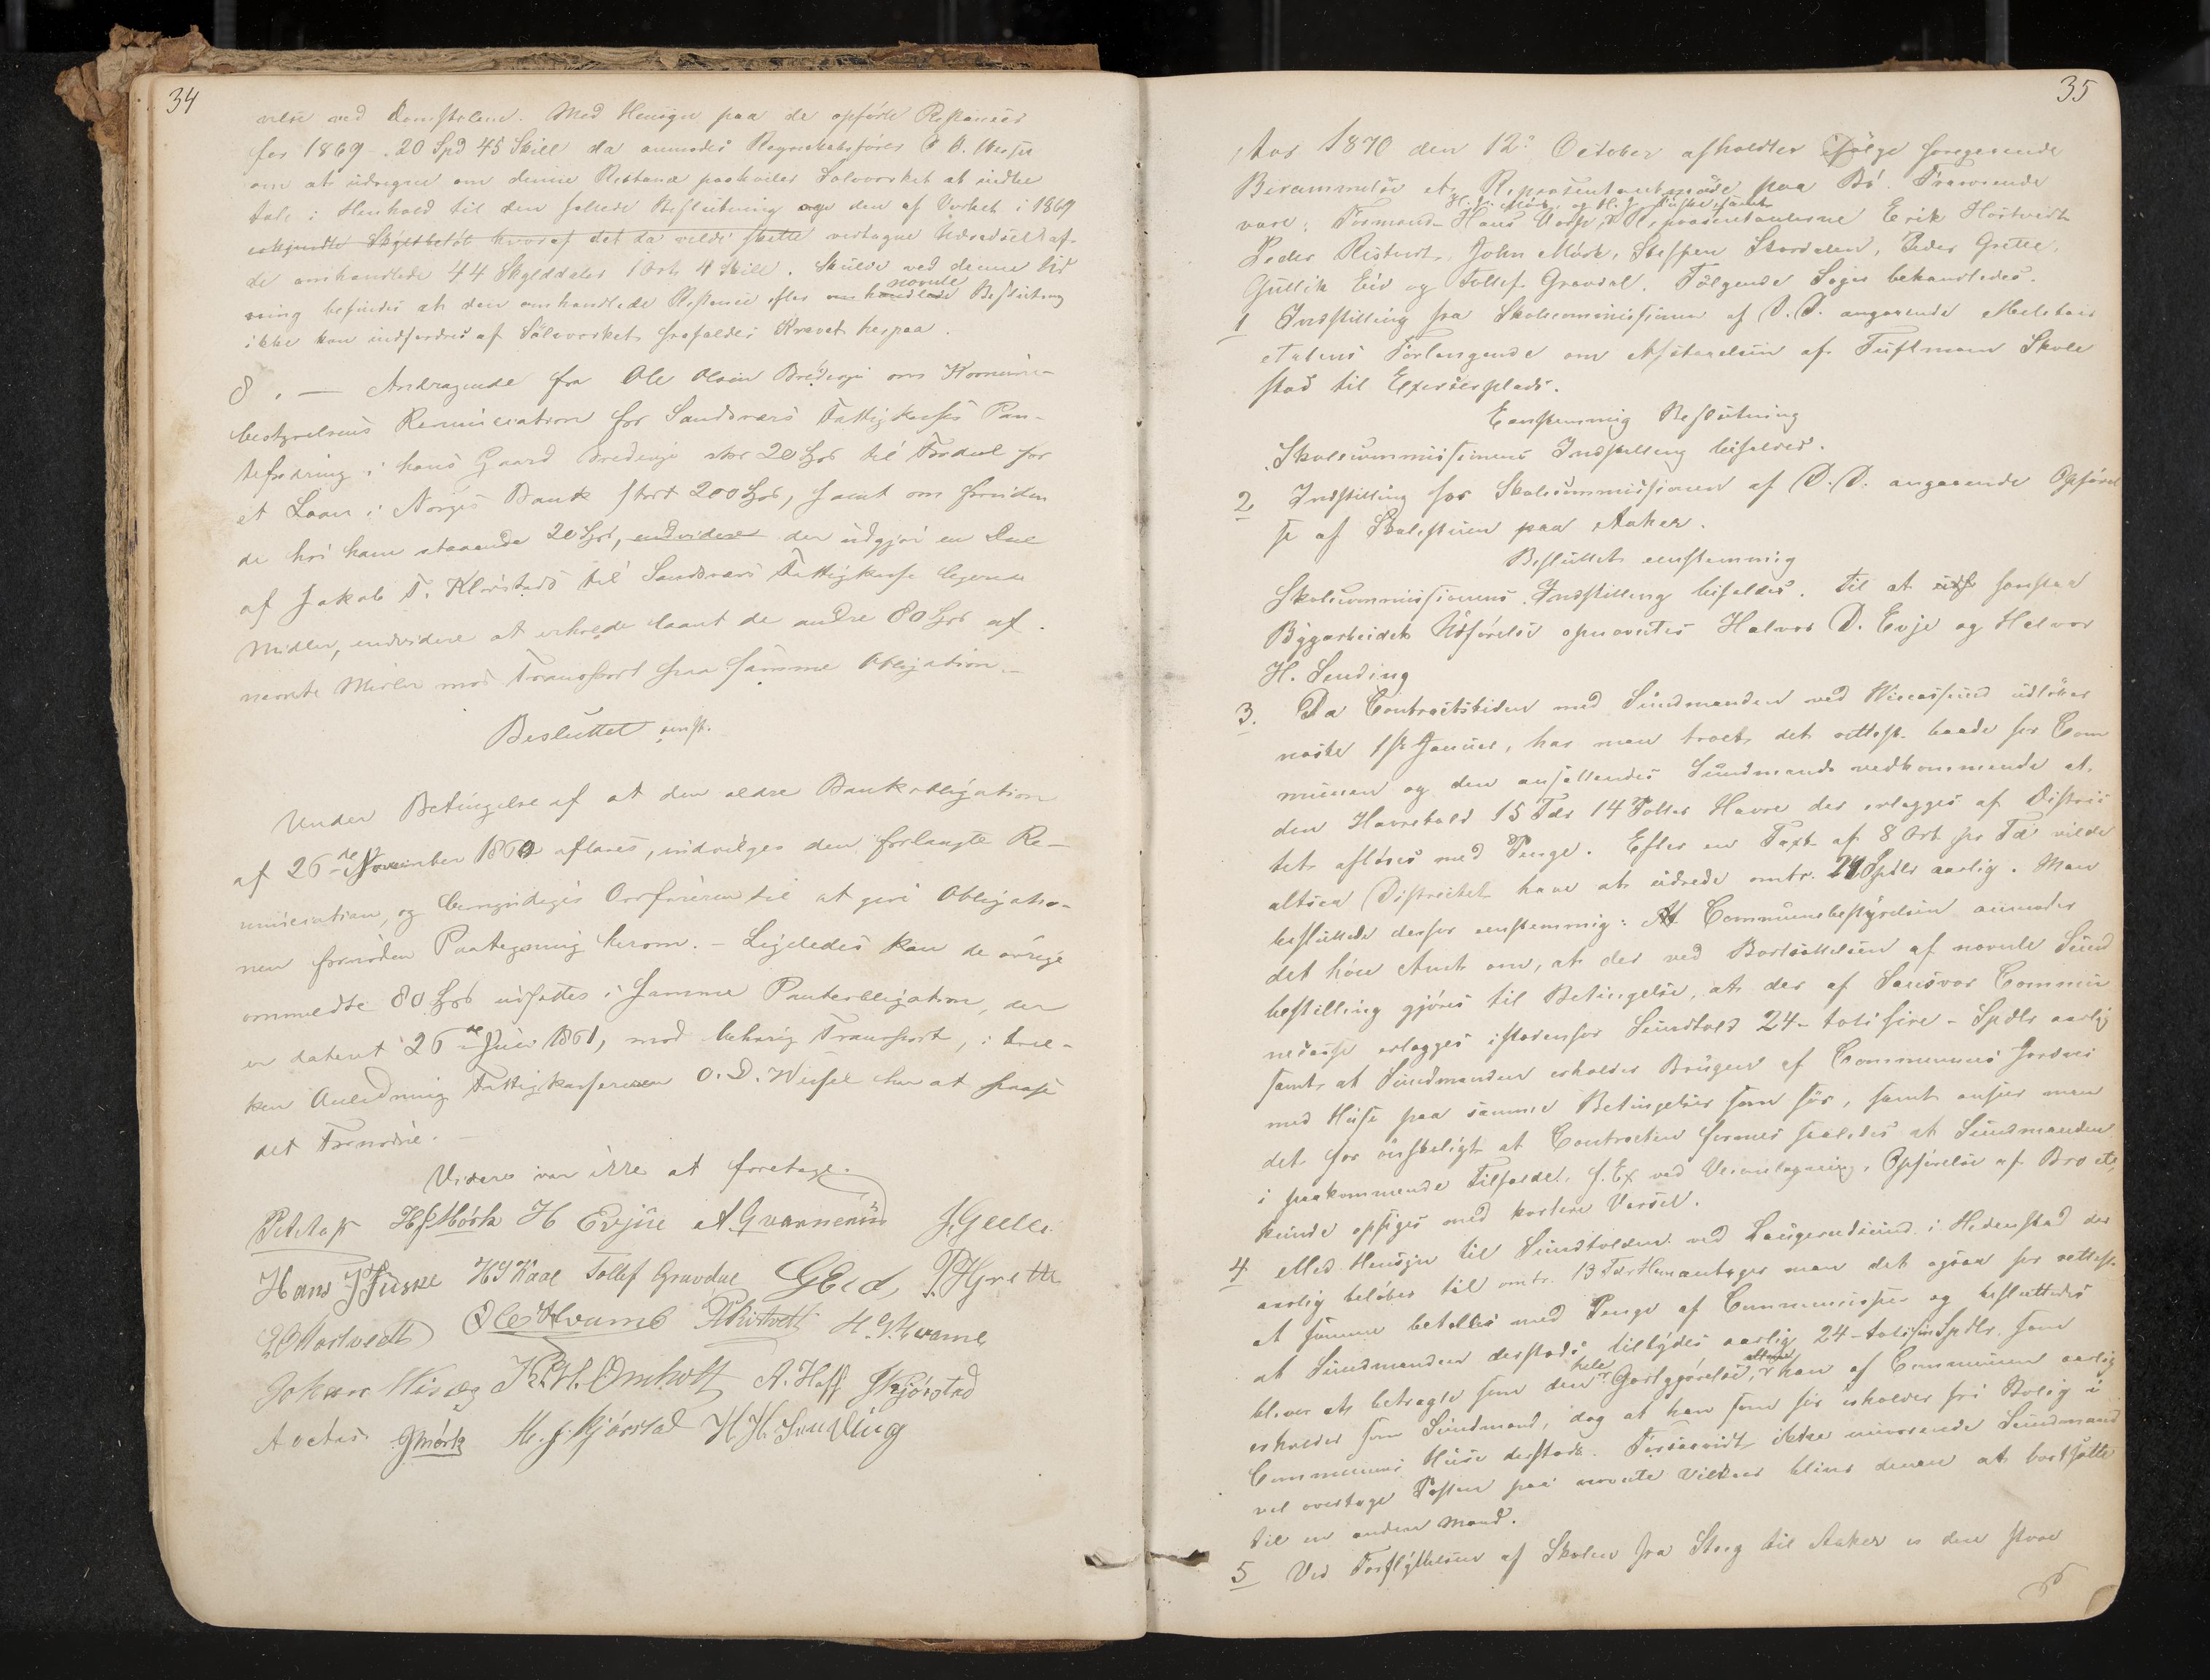 34
ved Domstolene. Med Hensyn paa de opførte Restancer
for 1869 - 20 Spd 45 Skill da anmodes Regnskabsfører O. D. Wessel
om at udregne om denne Restance paahviler Sølvværket at udbe
tale i Henhold til den fattede Beslutning den af Værket i 1869
Skyldbeløb hvoraf det da vilde vedtagne Udredsel af
de omhandlede 44 Skylddaler 1 Ort 4 Skill. Skulde ved denne Ud
nævnte
ring befindes at den omhandlede Restance efter omhandlede Beslutning
ikke kan indfordres af Sølvværket frafaldes Kravet herpaa.
8. — Andragende fra Ole Olsen om Kommune-
bestyrelsens Renunciation for Sandsværs Fattigkasses Pan-
tefordring i hans Gaard stor 20 Spd til Fordeel for
et Laan i Norges Bank stort 200 Spd, samt om foruden
de hos ham staaende 20 Spd, endvidere der udgjør en Deel
af Jakob T. til Sandsværs Fattigkasse
Midler, endvidere at erholde laant de andre 80 Spd af
nævnte Midler mod Transport paa samme Obligation. —
Besluttet eenst.
Under Betingelse af at den ældre Bankobligation
af 26de November 1860 aflæses, indvilges den forlangte Re-
nunciation, og bemyndiges Ordføreren til at give Obligatio-
nen fornøden Paategning herom. - Ligeledes kan de øvrige
ommeldte 80 Spd udsættes i samme Panteobligation, der
er dateret 26de Juni 1861, mod behørig Transport, i hvil-
ken Anledning Fattigkassereren O. D. Wessel har at paase
det Fornødne. —
Videre var ikke at foretage.
HJMørk H Evjue A. Qvarnerüd
Hans J Fuske HS Kaae Tollef Gravdal GEid, P. Hgrette
EHostvedt Ole Hvamb PRistvedt H. G. Hvame
Johan K. H. Omholt A. Hoff
JMørk M. J. Kjørstad H H. Sending
35
Aar 1870 den 12te October afholdtes ifølge foregaaende
Berammelse et Repræsentantmøde paa Bø. Fraværende
H. J. Mørk, og H. J. Fuske, samt
vare: Formand Hans Repræsentanterne Erik Hostvedt
Peder Ristvet, John Mørk, Steffen Skardalen, Peder Grette,
Gullik Eid og Tollef Gravdal. Følgende Sager behandledes.
1 Indstilling fra Skolecommissionen af D. D. angaaende Militair
etatens Forlangende om Afstaaelsen af Tuftmoen Skole
stad til Exerserplads.
Eenstemmig Beslutning
Skolecommissionens Indstilling bifaldes.
2 Indstilling fra Skolecommissionen af D. D. angaaende Opførel
se af Skolestuen paa Aaker.
Besluttet eenstemmig
Skolecommissionens Indstilling bifaldes. Til at forestaa
Bygarbeidets Udførelse opnævntes Halvor D. Evje og Halvor
H. Sending
3. Da Contractstiden med Sundmanden ved udløber
næste 1ste Januar, har man troet det rettest baade for Com
munen og den ansættendes Sundmands vedkommende at
den Havretold 15 Tdr 14 Potter Havre der erlægges af Distric
tet afløses med Penge. Efter en Taxt af 8 Ort pr Td vilde
altsaa Districtet have at udrede omtr. 24 Spdlr aarlig. Man
besluttede derfor eenstemmig: At Communebestyrelsen anmoder
det høie Amt om, at der ved Bortsættelsen af nævnte Sund
bestilling gjøres til Betingelse, at der af Sandsvær Commu
necasse erlægges istedenfor Sundtold 24 - totifire - Spdlr aarlig
samt at Sundmanden erholder Brugen af Communens Jordvei
med Huse paa samme Betingelser som før, samt anseer man
det for ønskeligt at Contracten formes saaledes at Sundmanden
i paakommende Tilfælde, f. Ex ved Veianlægning, Opførelse af Bro etc,
kunde opsiges med kortere Varsel.
4 Med Hensyn til Sundtolden ved Laugerudsund i Hedenstad der
aarlig beløber til omtr. 13 Tdr Havre antages man det ogsaa for rettest
at samme betales med Penge af Communecassen og besluttedes
at Sundmanden dersteds tilbydes aarlig 24 - totifire Spdlr som
hele
bliver at betragte som den Godtgjørelse, han af Communen aarlig
erholder som Sundmand, dog at han som før erholder fri Bolig i
Communens Huse dersteds. Forsaavidt ikke nuværende Sundmand
vil overtage Posten paa nævnte Vilkaar bliver denne at bortsætte
til en anden Mand.
5 Ved Forflyttelsen af Skolen fra Steg til Aaker er den